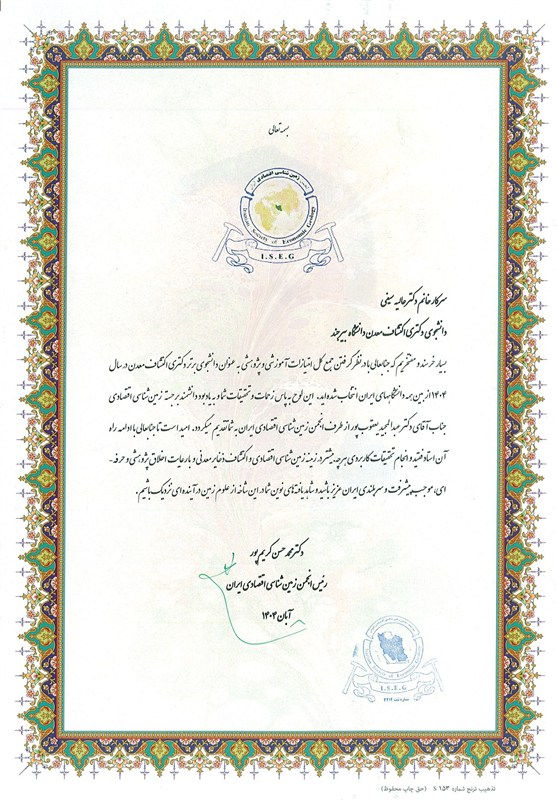 بسمه تعالی
انجمن زمین شناسی اقتصادی ایران
Iranian Society of Economic Geology
I.S.E.G
سرکار خانم دکتر عالیه سیفی
دانشجوی دکتری اکتشاف معدن دانشگاه بیرجند
بسیار خرسند و مفتخریم که جنابعالی با در نظر گرفتن جمع کل امتیازات آموزشی و پژوهشی به عنوان دانشجوی برتر دکتری اکتشاف معدن در سال
۱۴۰۴ از بین همه دانشگاههای ایران انتخاب شده اید. این لوح به پاس زحمات و تحقیقات شما و به یادبود دانشمند برجسته زمین شناسی اقتصادی
جناب آقای دکتر عبدالمجید یعقوب پور از طرف انجمن زمین شناسی اقتصادی ایران به شما تقدیم میگردد. امید است تا جنابعالی با ادامه راه
آن استاد فقید و انجام تحقیقات کاربردی هرچه بیشتر در زمینه زمین شناسی اقتصادی و اکتشاف ذخایر معدنی و با رعایت اخلاق پژوهشی و حرفه-
ای، موجب پیشرفت و سربلندی ایران عزیز باشید و شاهد یافته های نوین شما در این شاخه از علوم زمین در آینده ای نزدیک باشیم.
دکتر محمد حسن کریم پور
رئیس انجمن زمین شناسی اقتصادی ایران
آبان ۱۴۰۴
I.S.E.G
تذهیب ترنج شماره ۱۵۳ S (حق چاپ محفوظ)